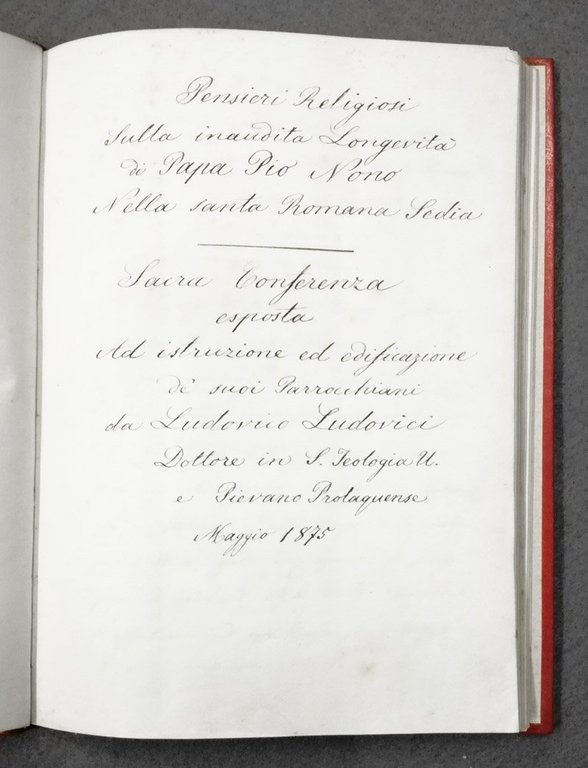 Pensieri Religiosi
sulla inaudita Longevità
di Papa Pio Nono
Nella santa Romana Sedia
Sacra Conferenza
esposta
Ad istruzione ed edificazione
de' suoi Parrocchiani
da Ludovico Ludovici
Dottore in S. Teologia U.
e Pievano Prolaquense
Maggio 1875